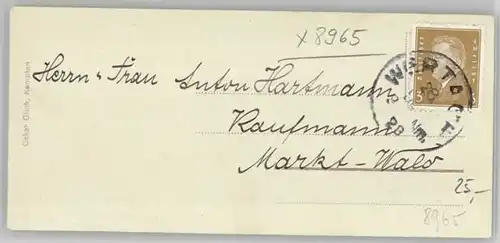 x 8965
Herrn u Frau Anton Hartmann
Kaufmann
Markt-Wald
25,-
8965
WERTACH
Oskar Glück, Kempten